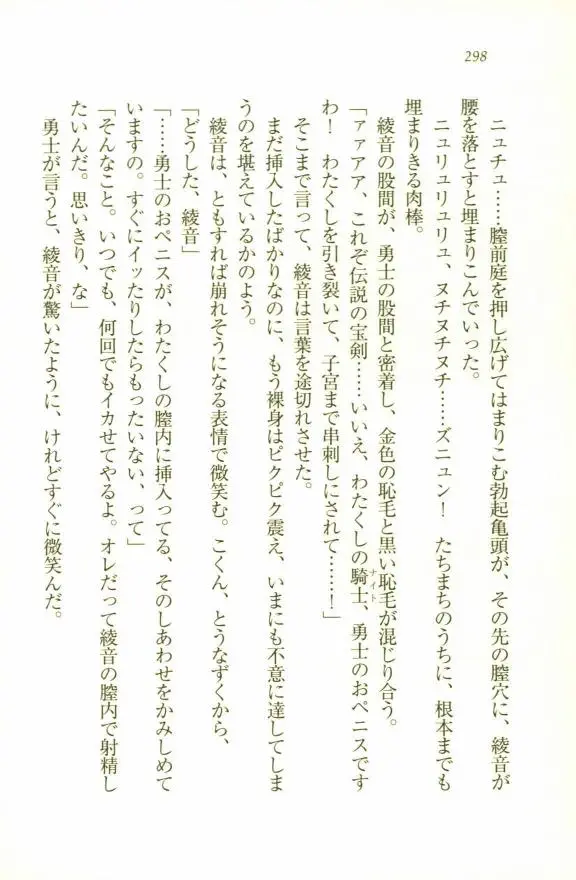 298
ニュチュ……膣前庭を押し広げてはまりこむ勃起亀頭が、その先の膣穴に、綾音が
腰を落とすと埋まりこんでいった。
ニュリュリュリュ、ヌチヌチヌチ……ズニュン！　たちまちのうちに、根本までも
埋まりきる肉棒。
綾音の股間が、勇士の股間と密着し、金色の恥毛と黒い恥毛が混じり合う。
「ァァアア、これぞ伝説の宝剣……いいえ、わたくしの騎士ナイト、勇士のおペニスです
わ！　わたくしを引き裂いて、子宮まで串刺しにされて……！」
そこまで言って、綾音は言葉を途切れさせた。
まだ挿入したばかりなのに、もう裸身はピクピク震え、いまにも不意に達してしま
うのを堪えているかのよう。
綾音は、ともすれば崩れそうになる表情で微笑む。こくん、とうなずくから、
「どうした、綾音」
「……勇士のおペニスが、わたくしの膣内に挿入ってる、そのしあわせをかみしめて
いますの。すぐにイッたりしたらもったいない、って」
「そんなこと。いつでも、何回でもイカせてやるよ。オレだって綾音の膣内で射精し
たいんだ。思いきり、な」
勇士が言うと、綾音が驚いたように、けれどすぐに微笑んだ。